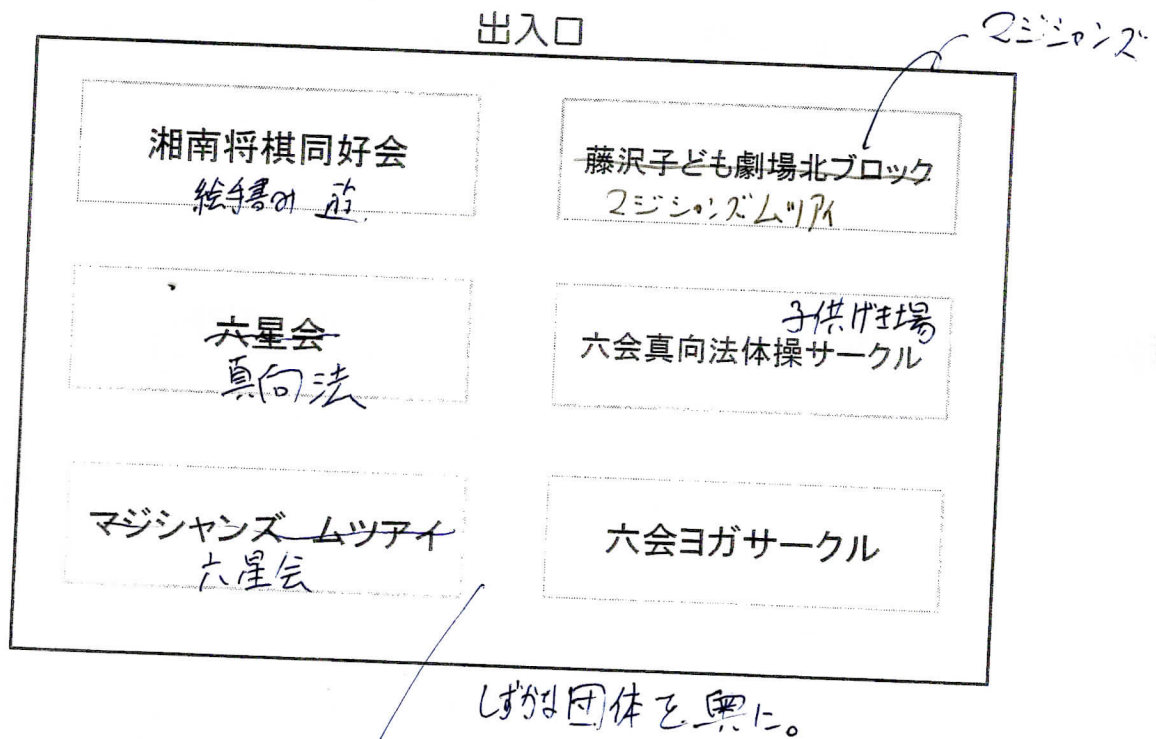 出入口
マジシャンズ
湘南将棋同好会
絵手書み 遊
藤沢子ども劇場北ブロック
マジシャンズムツアイ
六星会
真向法
子供げき場
六会真向法体操サークル
マジシャンズ ムツアイ
六星会
六会ヨガサークル
しずかな団体を奥に。